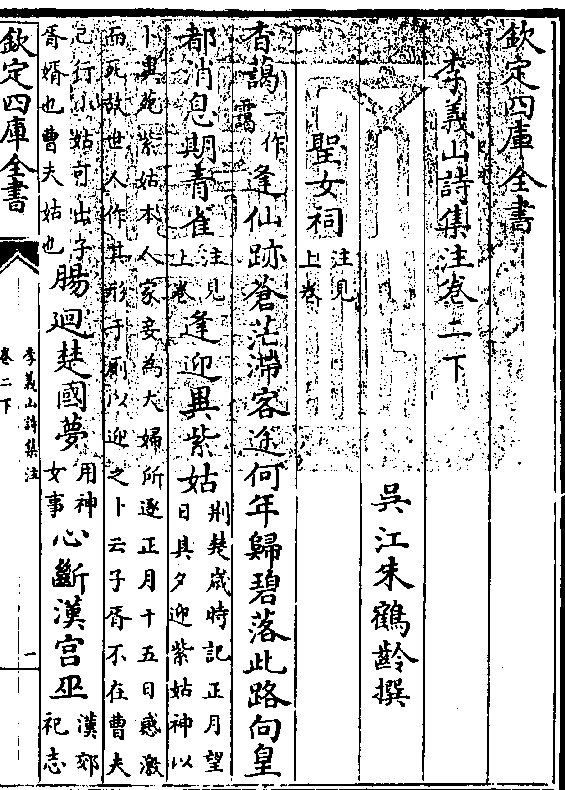 欽定四庫全書
李義山詩集注卷二下
吳江朱鶴齡撰
聖女祠注見上卷
杳藹一作靄逢仙跡蒼茫滯客途何年歸碧落此路向皇
都消息期青雀注見上卷逢迎異紫姑荆楚歲時記正月望日其夕迎紫姑神以
卜異苑紫姑本人家妾為大婦所逐正月十五日感激
而死故世人作其形于廁以迎之卜云子胥不在曹夫
已行小姑可出子胥婿也曹夫姑也腸迴楚國夢用神女事心斷漢宮巫漢郊祀志
欽定四庫全書
李義山詩集注
卷二下
一